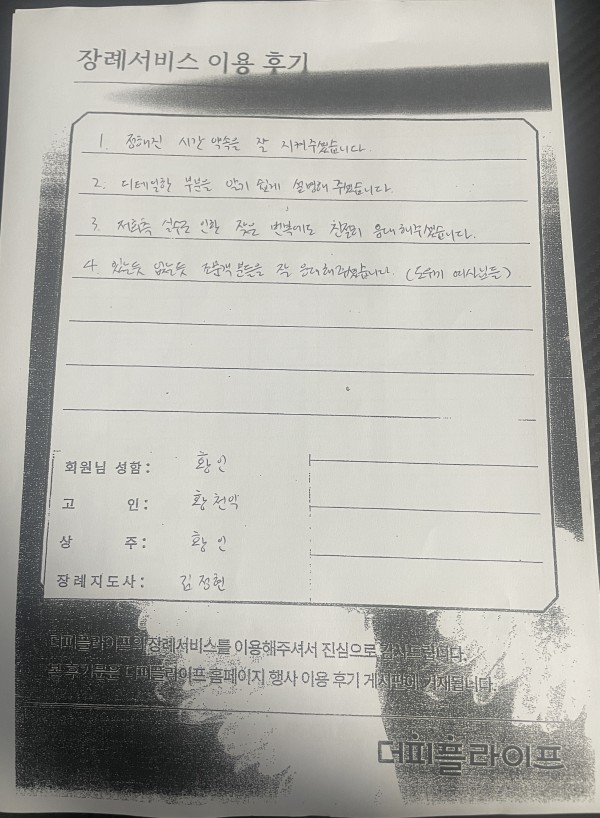 장례서비스 이용 후기
1. 정해진 시간 약속을 잘 지켜주셨습니다.
2. 디테일한 부분은 알기 쉽게 설명해 주셨습니다
3. 저희측 실수로 인한 잦은 번복에도 친절히 응대해주셨습니다.
4. 있는듯 없는듯 조문객분들을 잘 응대해주셨습니다. (도우미 여사님들)
회원님 성함: 황인
고 인: 황천악
상 주: 황인
장례지도사: 김정현
더피플라이프의 장례서비스를 이용해주셔서 진심으로 감사드립니다.
본 후기문은 더피플라이프 홈페이지 행사 이용 후기 게시판에 기재됩니다.
더피플라이프